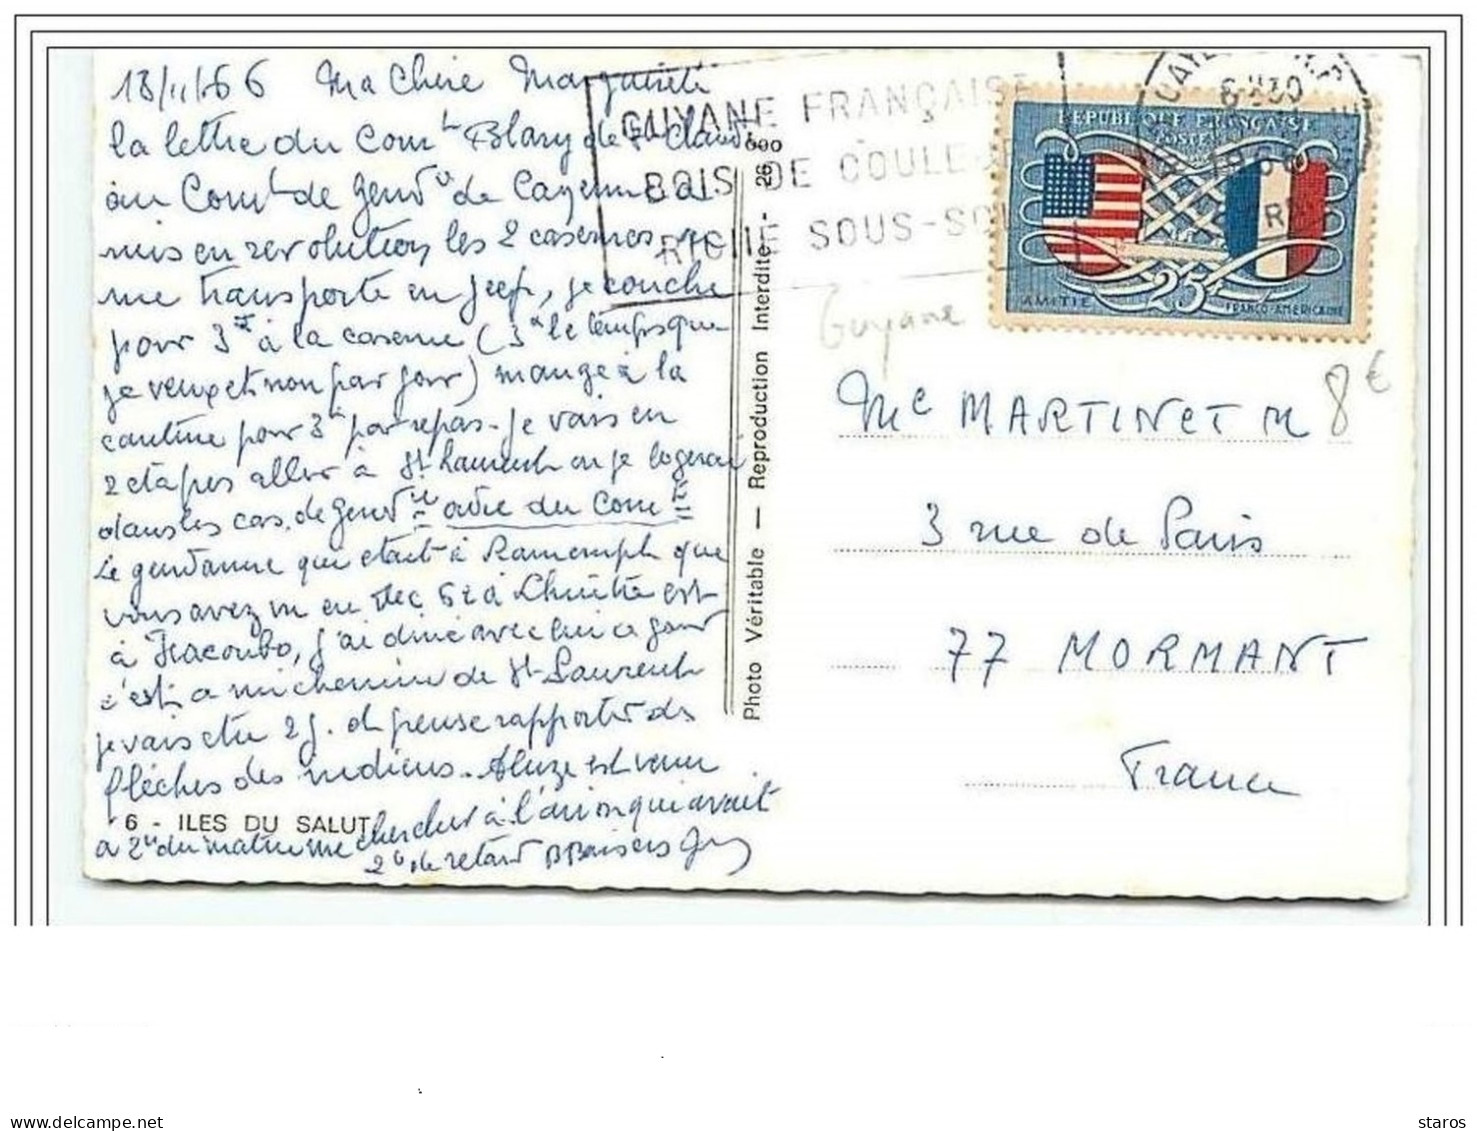 18/11/66 Ma Chère Marguerite
la lettre du Com^t Blary de St Claude
au Com^t de Gend^ie de Cayenne a
mis en révolution les 2 casernes, on
me transporte en jeep, je couche
pour 3^F à la caserne (3^F le temps que
je veux et non par jour) mange à la
cantine pour 3^F par repas. Je vais en
2 étapes aller à St Laurent où je logerai
dans les cas. de Gend^ie
Le gendarme qui était à que
vous avez vu en Dec 62 à est
à Iracoubo, j'ai diné avec lui ce jour
c'est à mi chemin de St Laurent
je vais etre 2 j. et pense rapporter des
flèches des indiens. est venu
me chercher à l'avion qui avait
à 2^h du matin
2^h de retard Baisers
6 - ILES DU SALUT
Photo Véritable — Reproduction Interdite - 26
GUYANE FRANÇAISE
BOIS DE COULEUR
RICHE SOUS-SOL
6H30
REPUBLIQUE FRANÇAISE
POSTES
25F
AMITIE
FRANCO-AMERICAINE
Guyane
8€
M^e MARTINET M
3 rue de Paris
77 MORMANT
France
staros